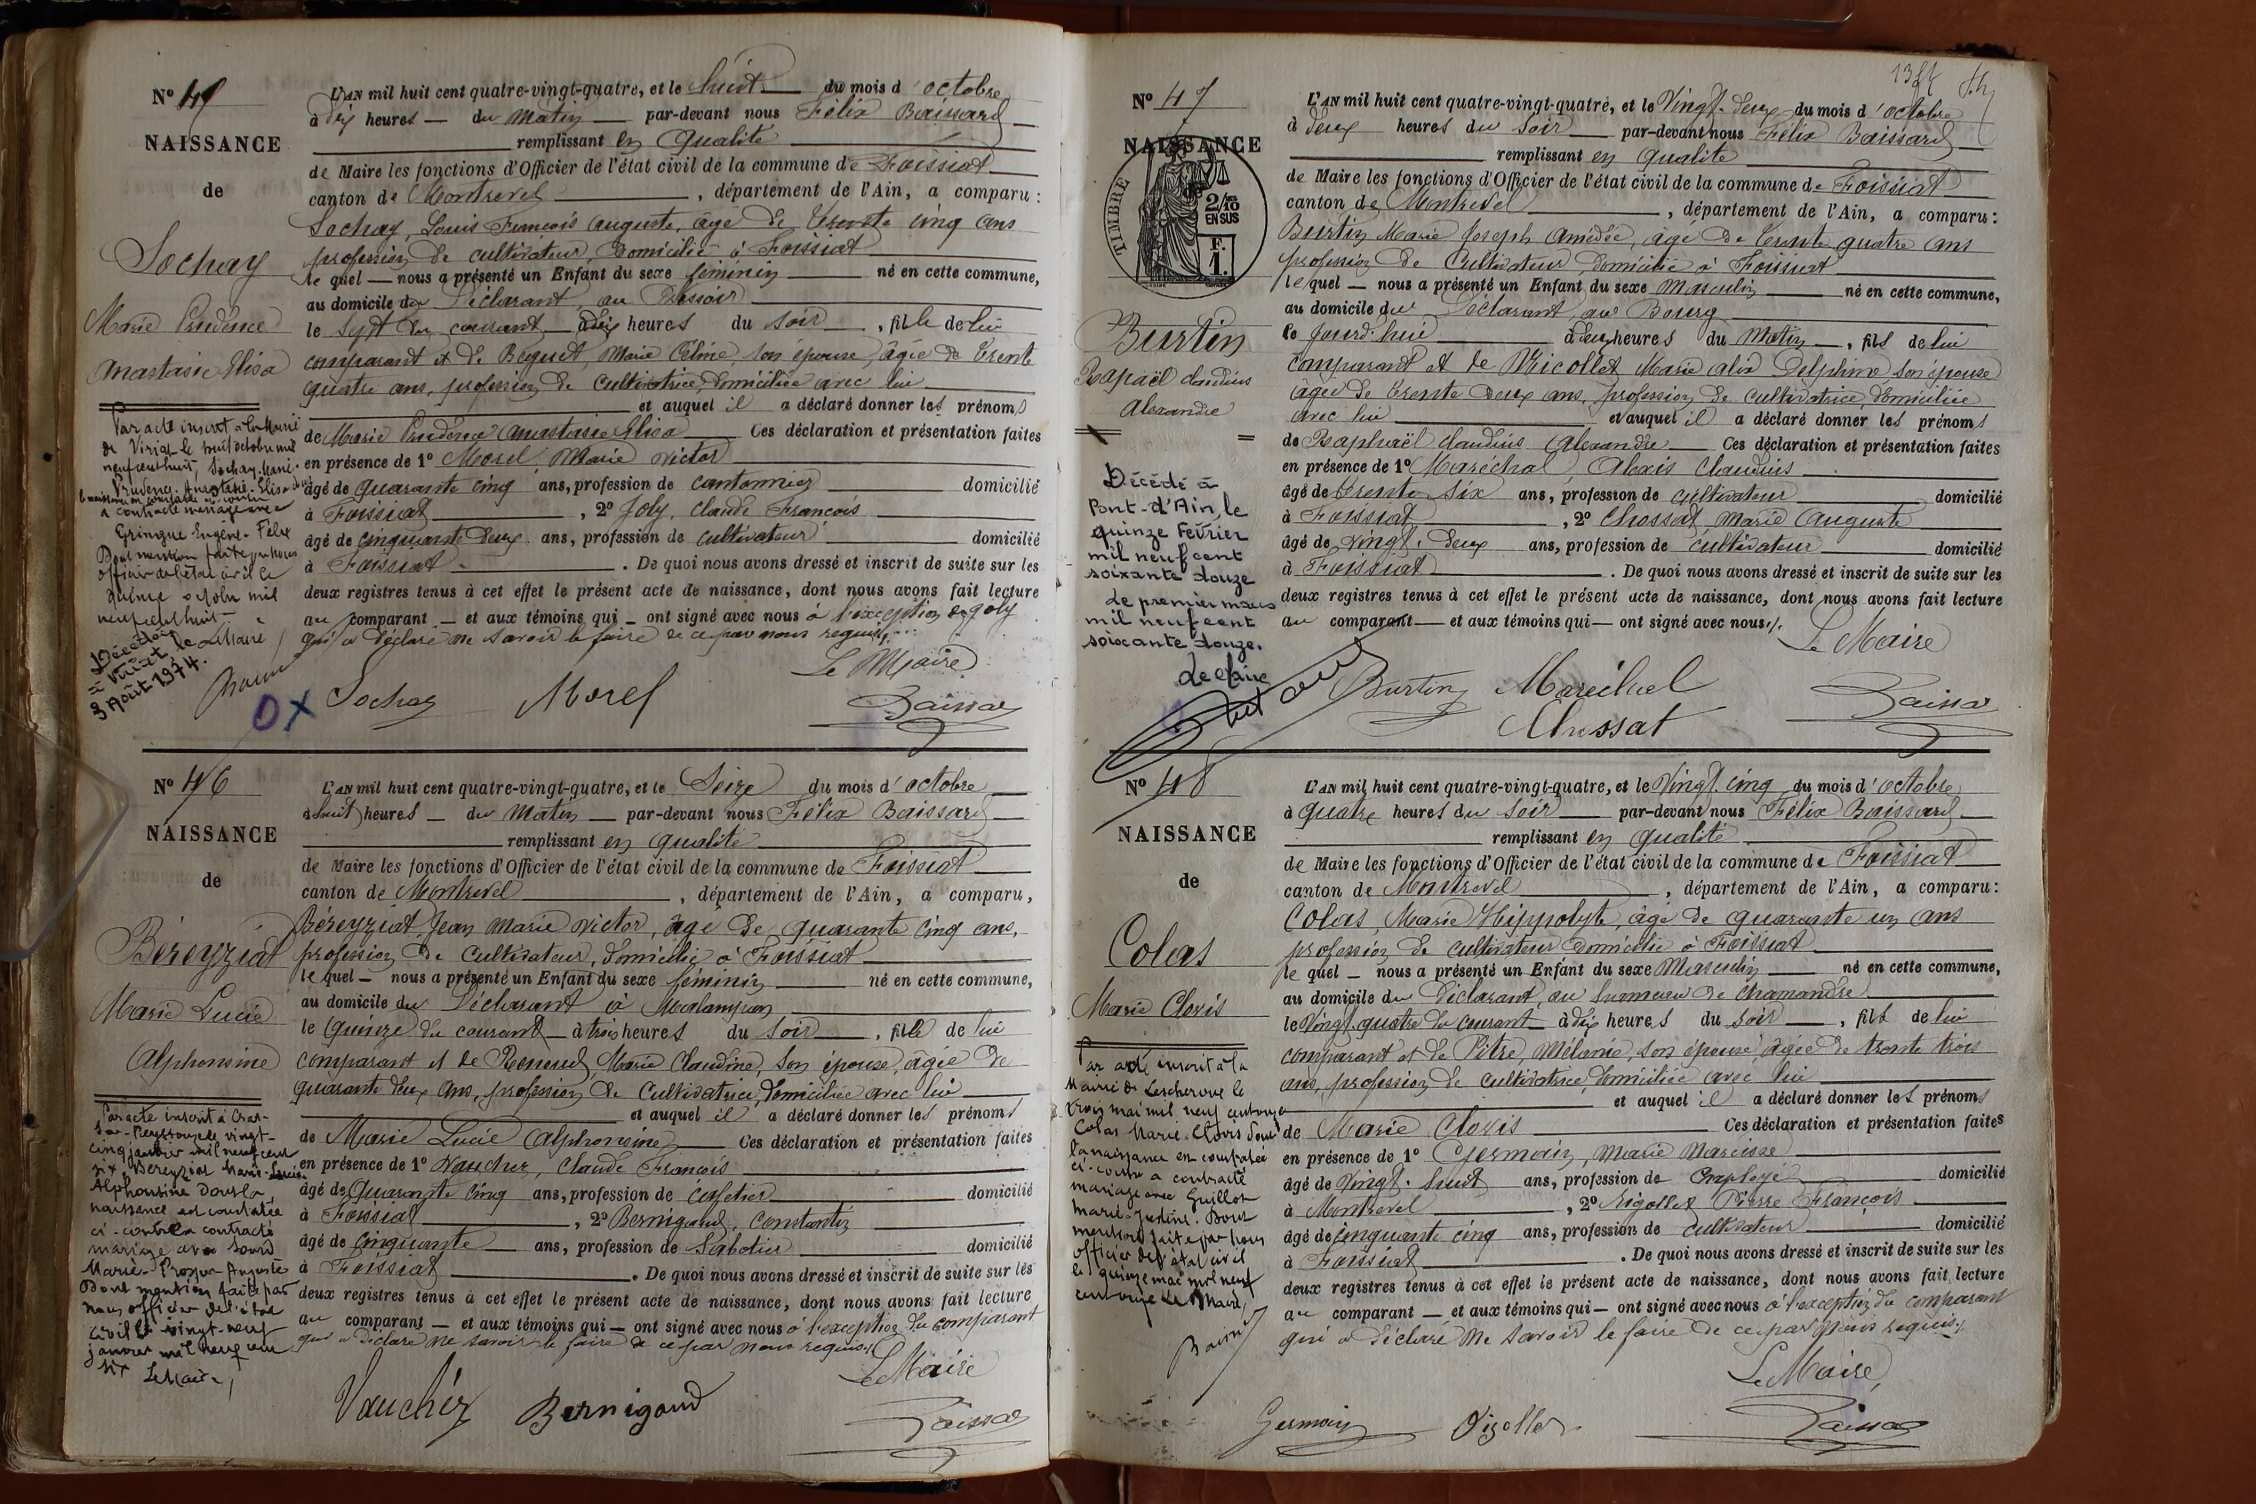 N° 45
NAISSANCE
de
Sochay
Marie Prudence
Anastasie Elisa
Par acte inscrit à la Mairie
de Viriat le huit octobre mil
neuf cent huit, Sochay Marie
Prudence Anastasie Elisa dont
la naissance est constatée ci-contre
a contracté mariage avec
Gringue Eugène Félix
Dont mention faite par nous
officier de l'état civil le
quinze octobre mil
neuf cent huit
le Maire
Décédée
à Viriat
3 Août 1974.
L'AN mil huit cent quatre-vingt-quatre, et le huit du mois d'octobre
à dix heures du Matin par-devant nous Félix Baissard
remplissant en qualité
de Maire les fonctions d'Officier de l'état civil de la commune de Foissiat
canton de Montrevel, département de l'Ain, a comparu :
Sochay, Louis François Auguste, âgé de trente cinq ans
profession de cultivateur, domicilié à Foissiat
le quel nous a présenté un Enfant du sexe féminin né en cette commune,
au domicile du Déclarant, au Bessoir
le sept du courant à dix heures du soir, fille de lui
comparant et de Béguet, Marie Céline, son épouse, âgée de trente
quatre ans, profession de cultivatrice domiciliée avec lui
et auquel il a déclaré donner les prénoms
de Marie Prudence Anastasie Elisa Ces déclaration et présentation faites
en présence de 1° Morel, Marie Victor
âgé de quarante cinq ans, profession de cantonnier domicilié
à Foissiat, 2° Joly, Claude François
âgé de cinquante deux ans, profession de cultivateur domicilié
à Foissiat. De quoi nous avons dressé et inscrit de suite sur les
deux registres tenus à cet effet le présent acte de naissance, dont nous avons fait lecture
au comparant et aux témoins qui ont signé avec nous à l'exception de Joly
qui a déclaré ne savoir le faire de ce par nous requis.
Le Maire
OX Sochay Morel Baissard
N° 46
NAISSANCE
de
Béreyziat
Marie Lucie
Alphonsine
Par acte inscrit à Cras-
sur-Reyssouze le vingt-
cinq janvier mil neuf cent
six, Béreyziat Marie-Lucie-
Alphonsine dont la
naissance est constatée
ci-contre a contracté
mariage avec
Marie-Prosper Auguste
Dont mention faite par
nous officier de l'état
civil le vingt-neuf
janvier mil neuf cent
six
Le Maire,
L'AN mil huit cent quatre-vingt-quatre, et le Seize du mois d'octobre
à huit heures du Matin par-devant nous Félix Baissard
remplissant en qualité
de Maire les fonctions d'Officier de l'état civil de la commune de Foissiat
canton de Montrevel, département de l'Ain, a comparu,
Béreyziat, Jean Marie Victor, âgé de quarante cinq ans,
profession de cultivateur, domicilié à Foissiat
le quel nous a présenté un Enfant du sexe féminin né en cette commune,
au domicile du Déclarant à
le Quinze du courant à trois heures du soir, fille de lui
comparant et de Renoud, Marie Claudine, son épouse, âgée de
quarante deux ans, profession de cultivatrice, domiciliée avec lui
et auquel il a déclaré donner les prénoms
de Marie Lucie Alphonsine Ces déclaration et présentation faites
en présence de 1° Vaucher, Claude François
âgé de Quarante cinq ans, profession de cafetier domicilié
à Foissiat, 2° Bernigaud, Constantin
âgé de cinquante ans, profession de Sabotier domicilié
à Foissiat. De quoi nous avons dressé et inscrit de suite sur les
deux registres tenus à cet effet le présent acte de naissance, dont nous avons fait lecture
au comparant et aux témoins qui ont signé avec nous à l'exception du comparant
qui a déclaré ne savoir le faire de ce par nous requis.
Le Maire
Vauchér Bernigaud Baissard
N° 47
NAISSANCE
TIMBRE
2/10
EN SUS
F.
1.
Burtin
Rapaël Claudius
Alexandre
Décédé à
Pont-d'Ain, le
quinze Février
mil neuf cent
soixante douze
le premier mars
mil neuf cent
soixante douze.
Le Maire
L'AN mil huit cent quatre-vingt-quatre, et le Vingt-deux du mois d'octobre
à deux heures du soir par-devant nous Félix Baissard
remplissant en qualité
de Maire les fonctions d'Officier de l'état civil de la commune de Foissiat
canton de Montrevel, département de l'Ain, a comparu :
Burtin Marie Joseph Amédée, âgé de trente quatre ans
profession de cultivateur domicilié à Foissiat
le quel nous a présenté un Enfant du sexe Masculin né en cette commune,
au domicile du Déclarant, au Bourg
le jourd'hui à deux heures du Matin, fils de lui
comparant et de Nicollet Marie Alix Delphine son épouse
âgée de trente deux ans, profession de cultivatrice domiciliée
avec lui et auquel il a déclaré donner les prénoms
de Raphaël Claudius Alexandre Ces déclaration et présentation faites
en présence de 1° Maréchal, Alexis Claudius
âgé de trente six ans, profession de cultivateur domicilié
à Foissiat, 2° Chossat, Marie Auguste
âgé de vingt-deux ans, profession de cultivateur domicilié
à Foissiat. De quoi nous avons dressé et inscrit de suite sur les
deux registres tenus à cet effet le présent acte de naissance, dont nous avons fait lecture
au comparant et aux témoins qui ont signé avec nous.
Le Maire
Burtin Maréchal Baissard
Chossat
N° 48
NAISSANCE
de
Colas
Marie Clovis
Par acte inscrit à la
Mairie de Lescheroux le
trois mai mil neuf cent onze
Colas Marie-Clovis dont
la naissance est constatée
ci-contre a contracté
mariage avec Guillot
Marie-Justine. Dont
mention faite par nous
officier de l'état civil
le quinze mai mil neuf
cent onze Le Maire,
L'AN mil huit cent quatre-vingt-quatre, et le Vingt-cinq du mois d'octobre
à quatre heures du soir par-devant nous Félix Baissard
remplissant en qualité
de Maire les fonctions d'Officier de l'état civil de la commune de Foissiat
canton de Montrevel, département de l'Ain, a comparu :
Colas, Marie Hippolyte, âgé de quarante un ans
profession de cultivateur domicilié à Foissiat
le quel nous a présenté un Enfant du sexe Masculin né en cette commune,
au domicile du Déclarant, au hameau de Chamandre
le Vingt-quatre du courant à dix heures du soir, fils de lui
comparant et de Pitre, Mélanie, son épouse âgée de trente trois
ans, profession de cultivatrice, domiciliée avec lui
et auquel il a déclaré donner les prénoms
de Marie Clovis Ces déclaration et présentation faites
en présence de 1° Germain, Marie Narcisse
âgé de Vingt-huit ans, profession de Employé domicilié
à Montrevel, 2° Rigollet Pierre François
âgé de cinquante cinq ans, profession de cultivateur domicilié
à Foissiat. De quoi nous avons dressé et inscrit de suite sur les
deux registres tenus à cet effet le présent acte de naissance, dont nous avons fait lecture
au comparant et aux témoins qui ont signé avec nous à l'exception du comparant
qui a déclaré ne savoir le faire de ce par nous requis.
Le Maire,
Germain Rigollet Baissard